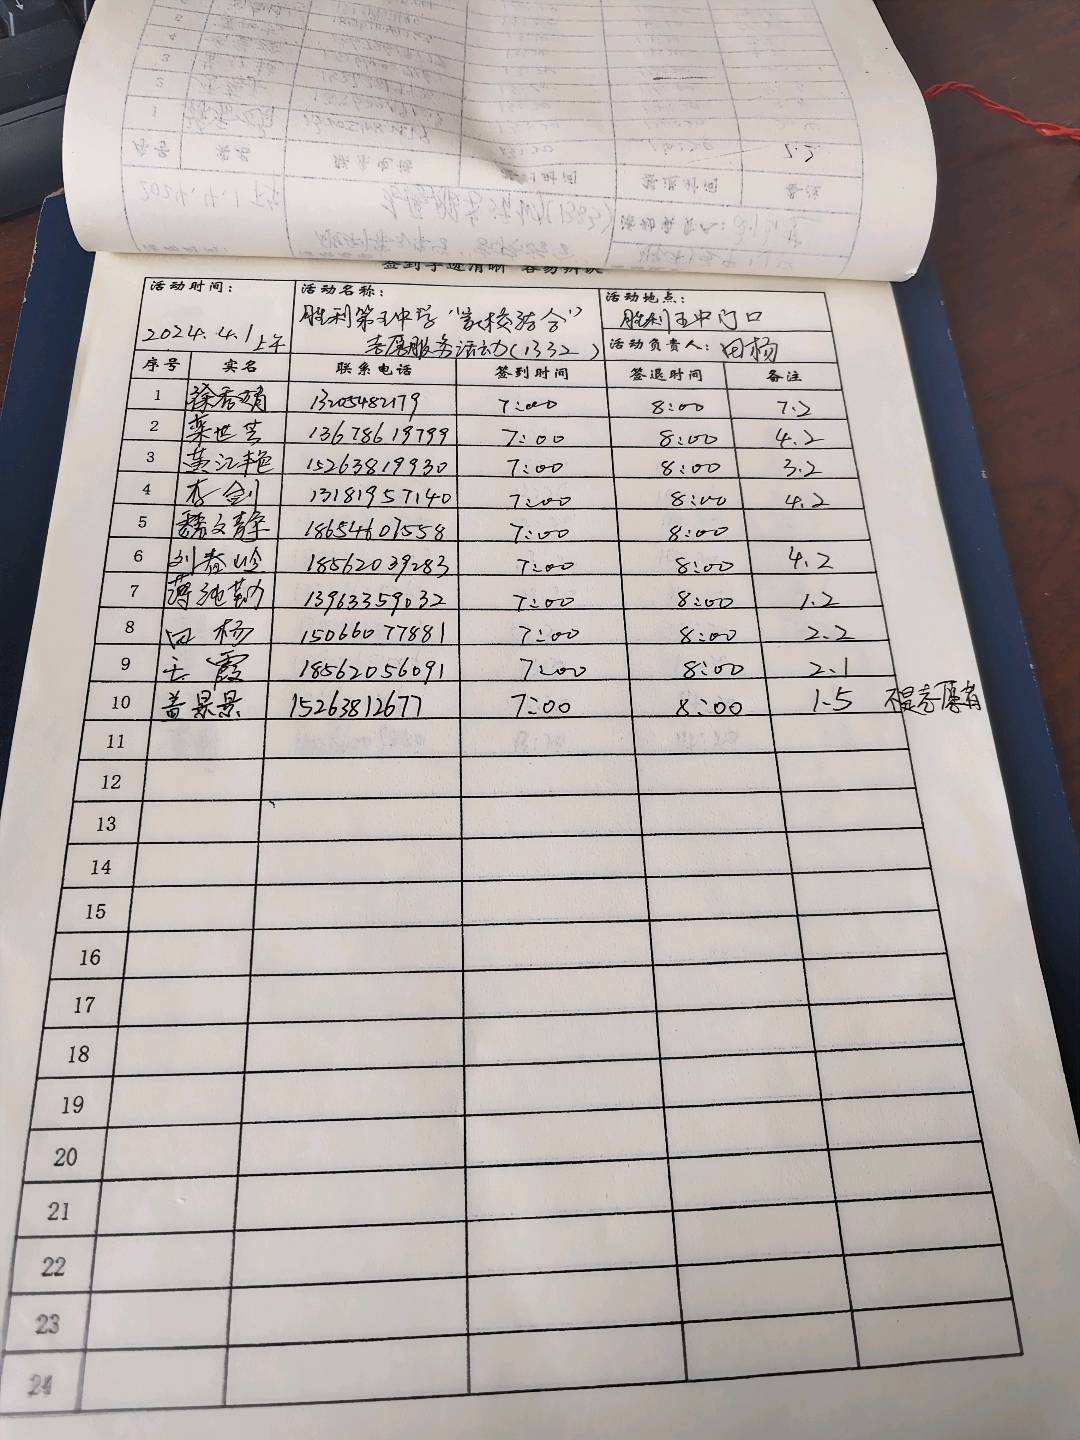 签到字迹清晰 容易辨识
活动时间： 活动名称： 活动地点：
2024.4.1上午 胜利第五中学“家校结合” 胜利五中门口
志愿服务活动(1332) 活动负责人：田杨
序号 实名 联系电话 签到时间 签退时间 备注
1 徐秀娟 13205482179 7:00 8:00 7.2
2 栾世芸 13678619799 7:00 8:00 4.2
3 黄江艳 15263819930 7:00 8:00 3.2
4 李剑 13181957140 7:00 8:00 4.2
5 魏文静 18654607558 7:00 8:00
6 刘春岭 18562039283 7:00 8:00 4.2
7 薄纯勤 13963359032 7:00 8:00 1.2
8 田杨 15066077881 7:00 8:00 2.2
9 王霞 18562056091 7:00 8:00 2.1
10 黄景景 15263812677 7:00 8:00 1.5 不是志愿者
11
12
13
14
15
16
17
18
19
20
21
22
23
24